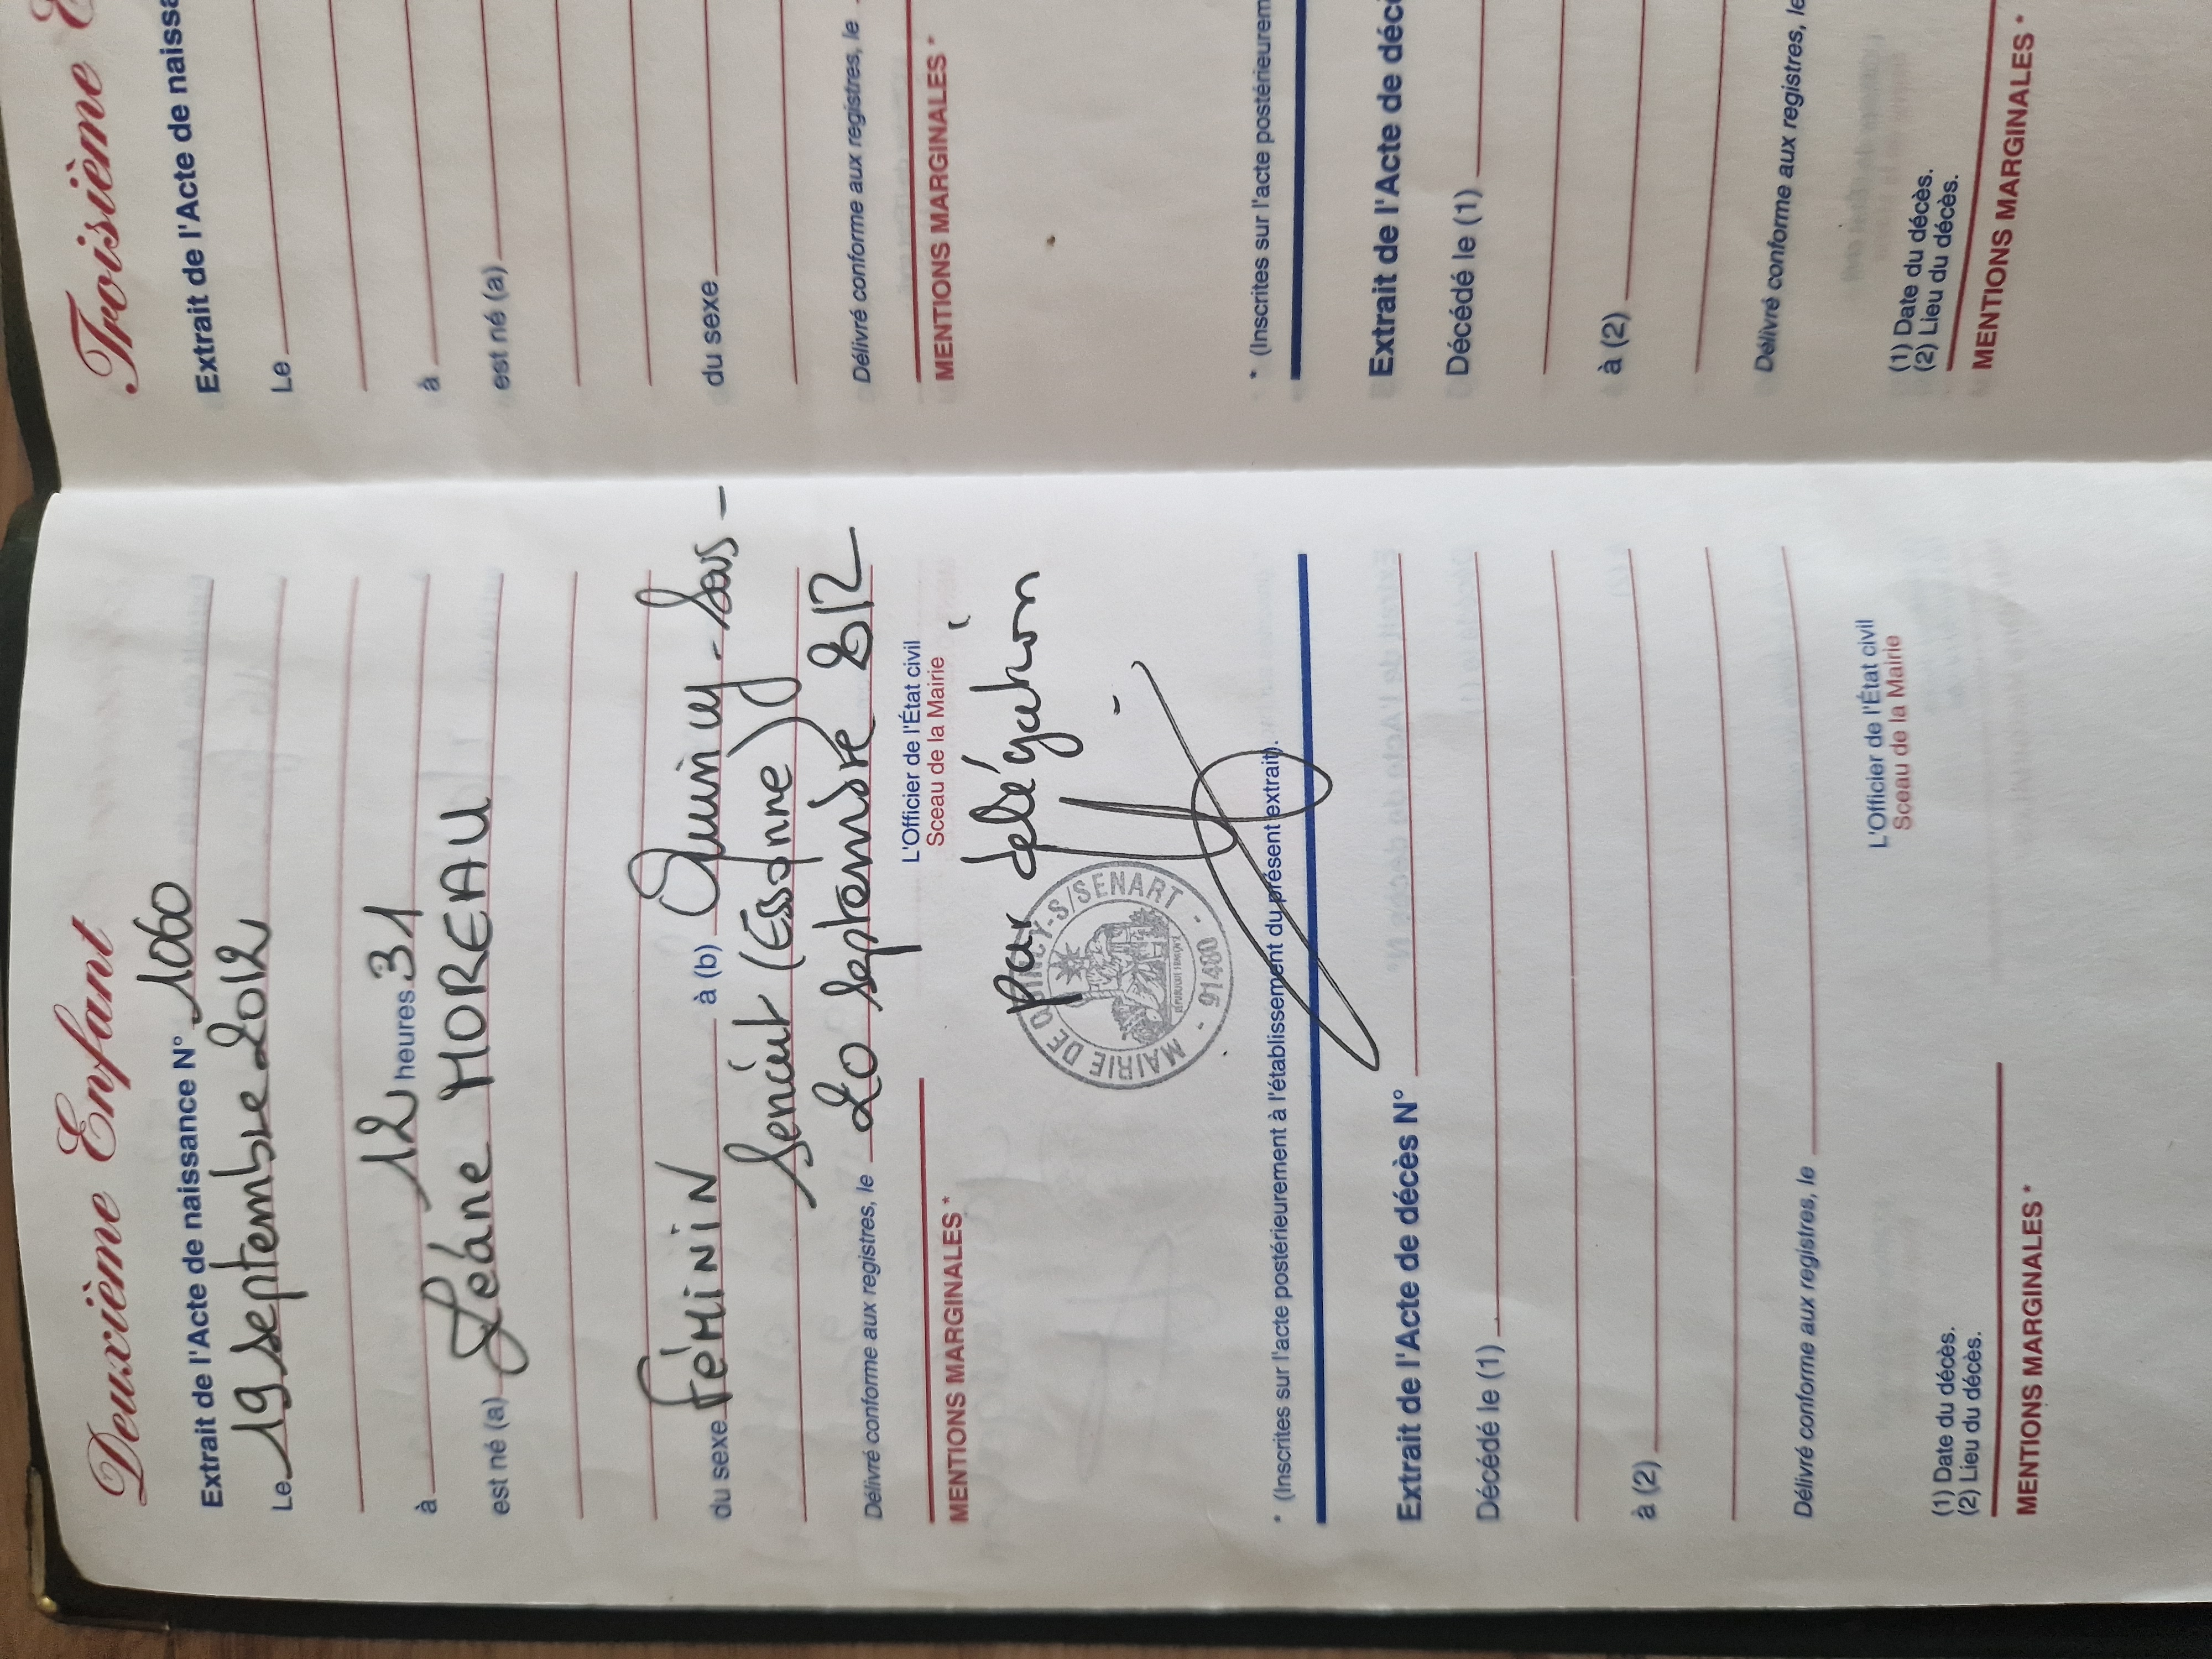 Deuxième Enfant
Extrait de l'Acte de naissance N° 1060
Le 19 septembre 2012
à 12 heures 31
est né (a) Léane MOREAU
du sexe FéMiNiN à (b) Quincy-Sous-
Sénart (Essonne)
Délivré conforme aux registres, le 20 septembre 2012
L'Officier de l'État civil
Sceau de la Mairie
MENTIONS MARGINALES *
par délégation
MAIRIE DE QUINCY-S/SENART - 91480 -
* (Inscrites sur l'acte postérieurement à l'établissement du présent extrait).
Extrait de l'Acte de décès N°
Décédé le (1)
à (2)
Délivré conforme aux registres, le
L'Officier de l'État civil
Sceau de la Mairie
(1) Date du décès.
(2) Lieu du décès.
MENTIONS MARGINALES *
Troisième E
Extrait de l'Acte de naissa
Le
à
est né (a)
du sexe
Délivré conforme aux registres, le
MENTIONS MARGINALES *
* (Inscrites sur l'acte postérieurem
Extrait de l'Acte de décè
Décédé le (1)
à (2)
Délivré conforme aux registres, le
(1) Date du décès.
(2) Lieu du décès.
MENTIONS MARGINALES *